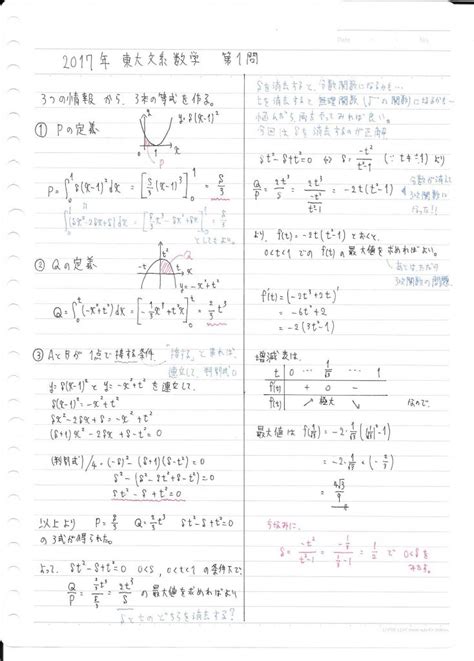 2017年 東大文系数学 第1問
3つの情報から、3本の等式を作る。
① Pの定義
y=s(x-1)²
P=∫₀¹ s(x-1)²dx = [s/3 (x-1)³]₀¹ = s/3
∫₀¹(sx²-2sx+s)dx = [s/3 x³-sx²+sx]₀¹
としてもよい。
② Qの定義
-t
t
t²
Q
y=-x²+t²
Q=∫₀ᵗ(-x²+t²)dx = [-1/3 x³+t²x]₀ᵗ = 2/3 t³
③ AとBが1点で接する条件
「接する」と来れば、
連立して、判別式0
y=s(x-1)² と y=-x²+t² を連立して、
s(x-1)² = -x²+t²
sx²-2sx+s = -x²+t²
(s+1)x²-2sx+s-t²=0
(判別式)/4 = (-s)²-(s+1)(s-t²)=0
s²-(s²-st²+s-t²)=0
st²-s+t²=0
以上より P=s/3 Q=2/3 t³ st²-s+t²=0
の3式が得られた。
よって、st²-s+t²=0 0<s, 0<t<1 の条件下で、
Q/P = (2/3 t³)/(s/3) = 2t³/s の最大値を求めればよい
sとtのどちらを消去する?
sを消去すると、分数関数になるかも…
tを消去すると無理関数(√の関数)になるかも…
悩んだら両方やってみれば良い。
今回はsを消去するのが正解
st²-s+t²=0 ⇔ s=-t²/(t²-1) (∵t≠±1)
Q/P = 2t³/s = 2t³/(-t²/(t²-1)) = -2t(t²-1)
分数が消えて
3次関数に
なった!!
より、f(t)=-2t(t²-1)とおくと、
0<t<1でのf(t)の最大値を求めればよい。
あとはただの
3次関数の問題
f'(t)=(-2t³+2t)'
=-6t²+2
=-2(3t²-1)
増減表は、
t 0 … 1/√3 … 1
f'(t) + 0 -
f(t) ↗ 極大 ↘ なので、
最大値は f(1/√3) = -2・1/√3{(1/√3)²-1}
= -2・1/√3 × (-2/3)
= 4√3/9
ちなみに、
s = -t²/(t²-1) = (-1/3)/(1/3-1) = 1/2 で 0<sを
みたしている。